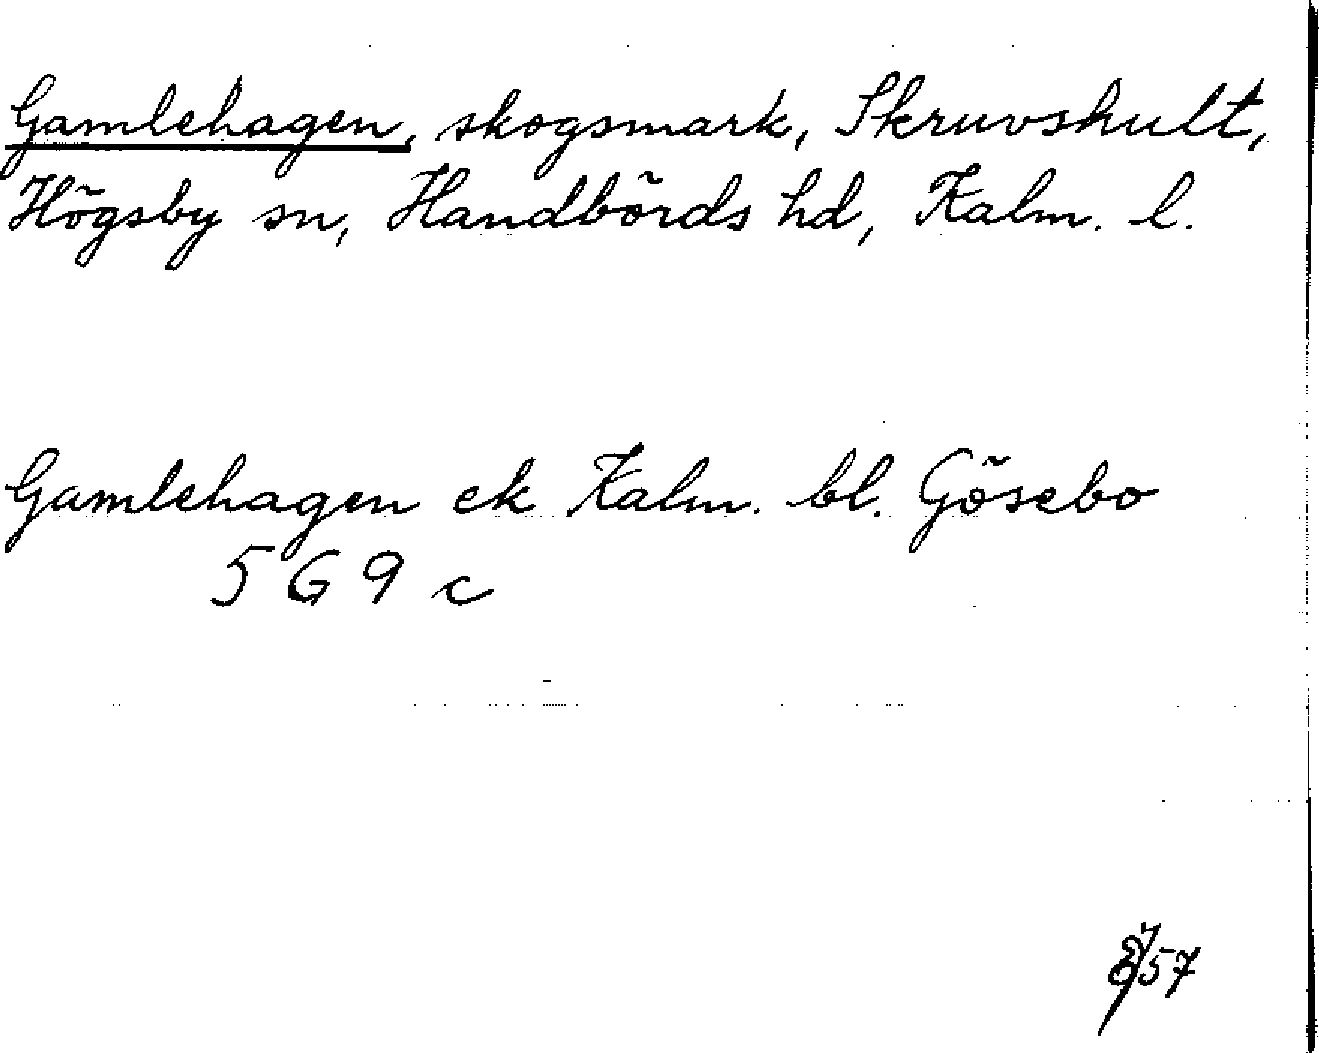 Gamlehagen, skogsmark, Skruvshult,
Högsby sn, Handbörds hd, Kalm. l.
Gamlehagen ek Kalm. bl. Gösebo
5 G 9 c
57